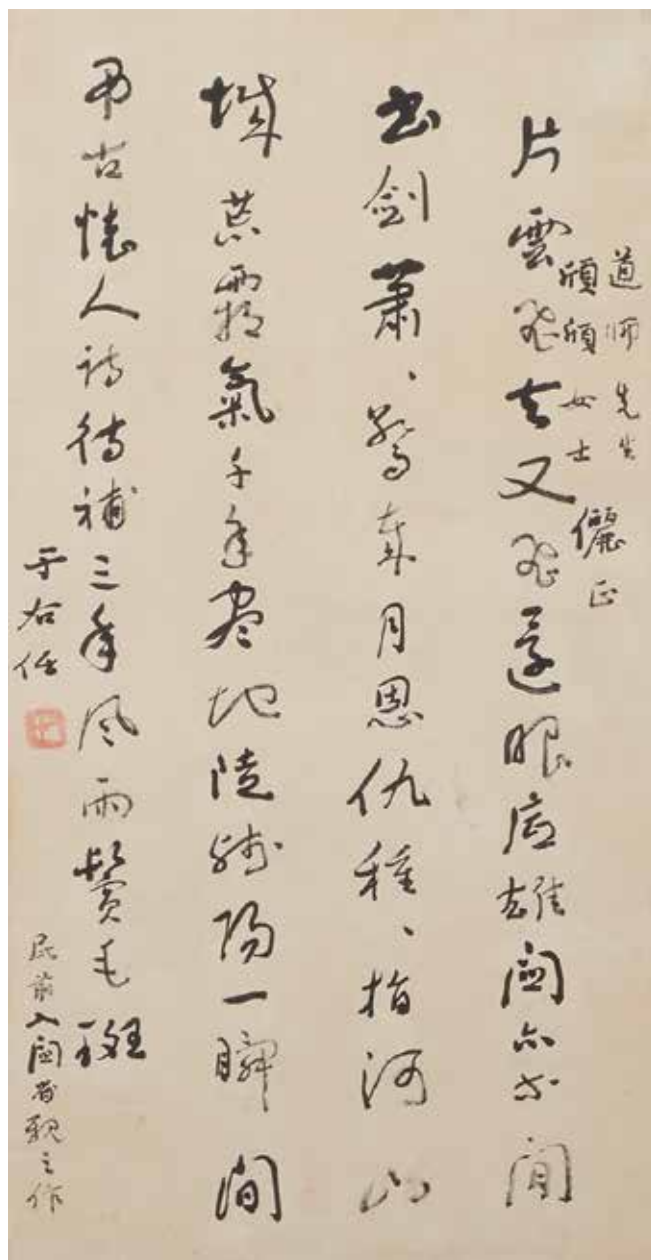 道師先生
女士 儷正
片雲飛去又飛還眼底雄關亦等閒
書劍蕭、驚歲月恩仇種、指河山
城荒霜氣千年盡地陡殘陽一瞬間
弔古懷人詩待補三年風雨鬢毛斑
于右任
民前入關省親之作